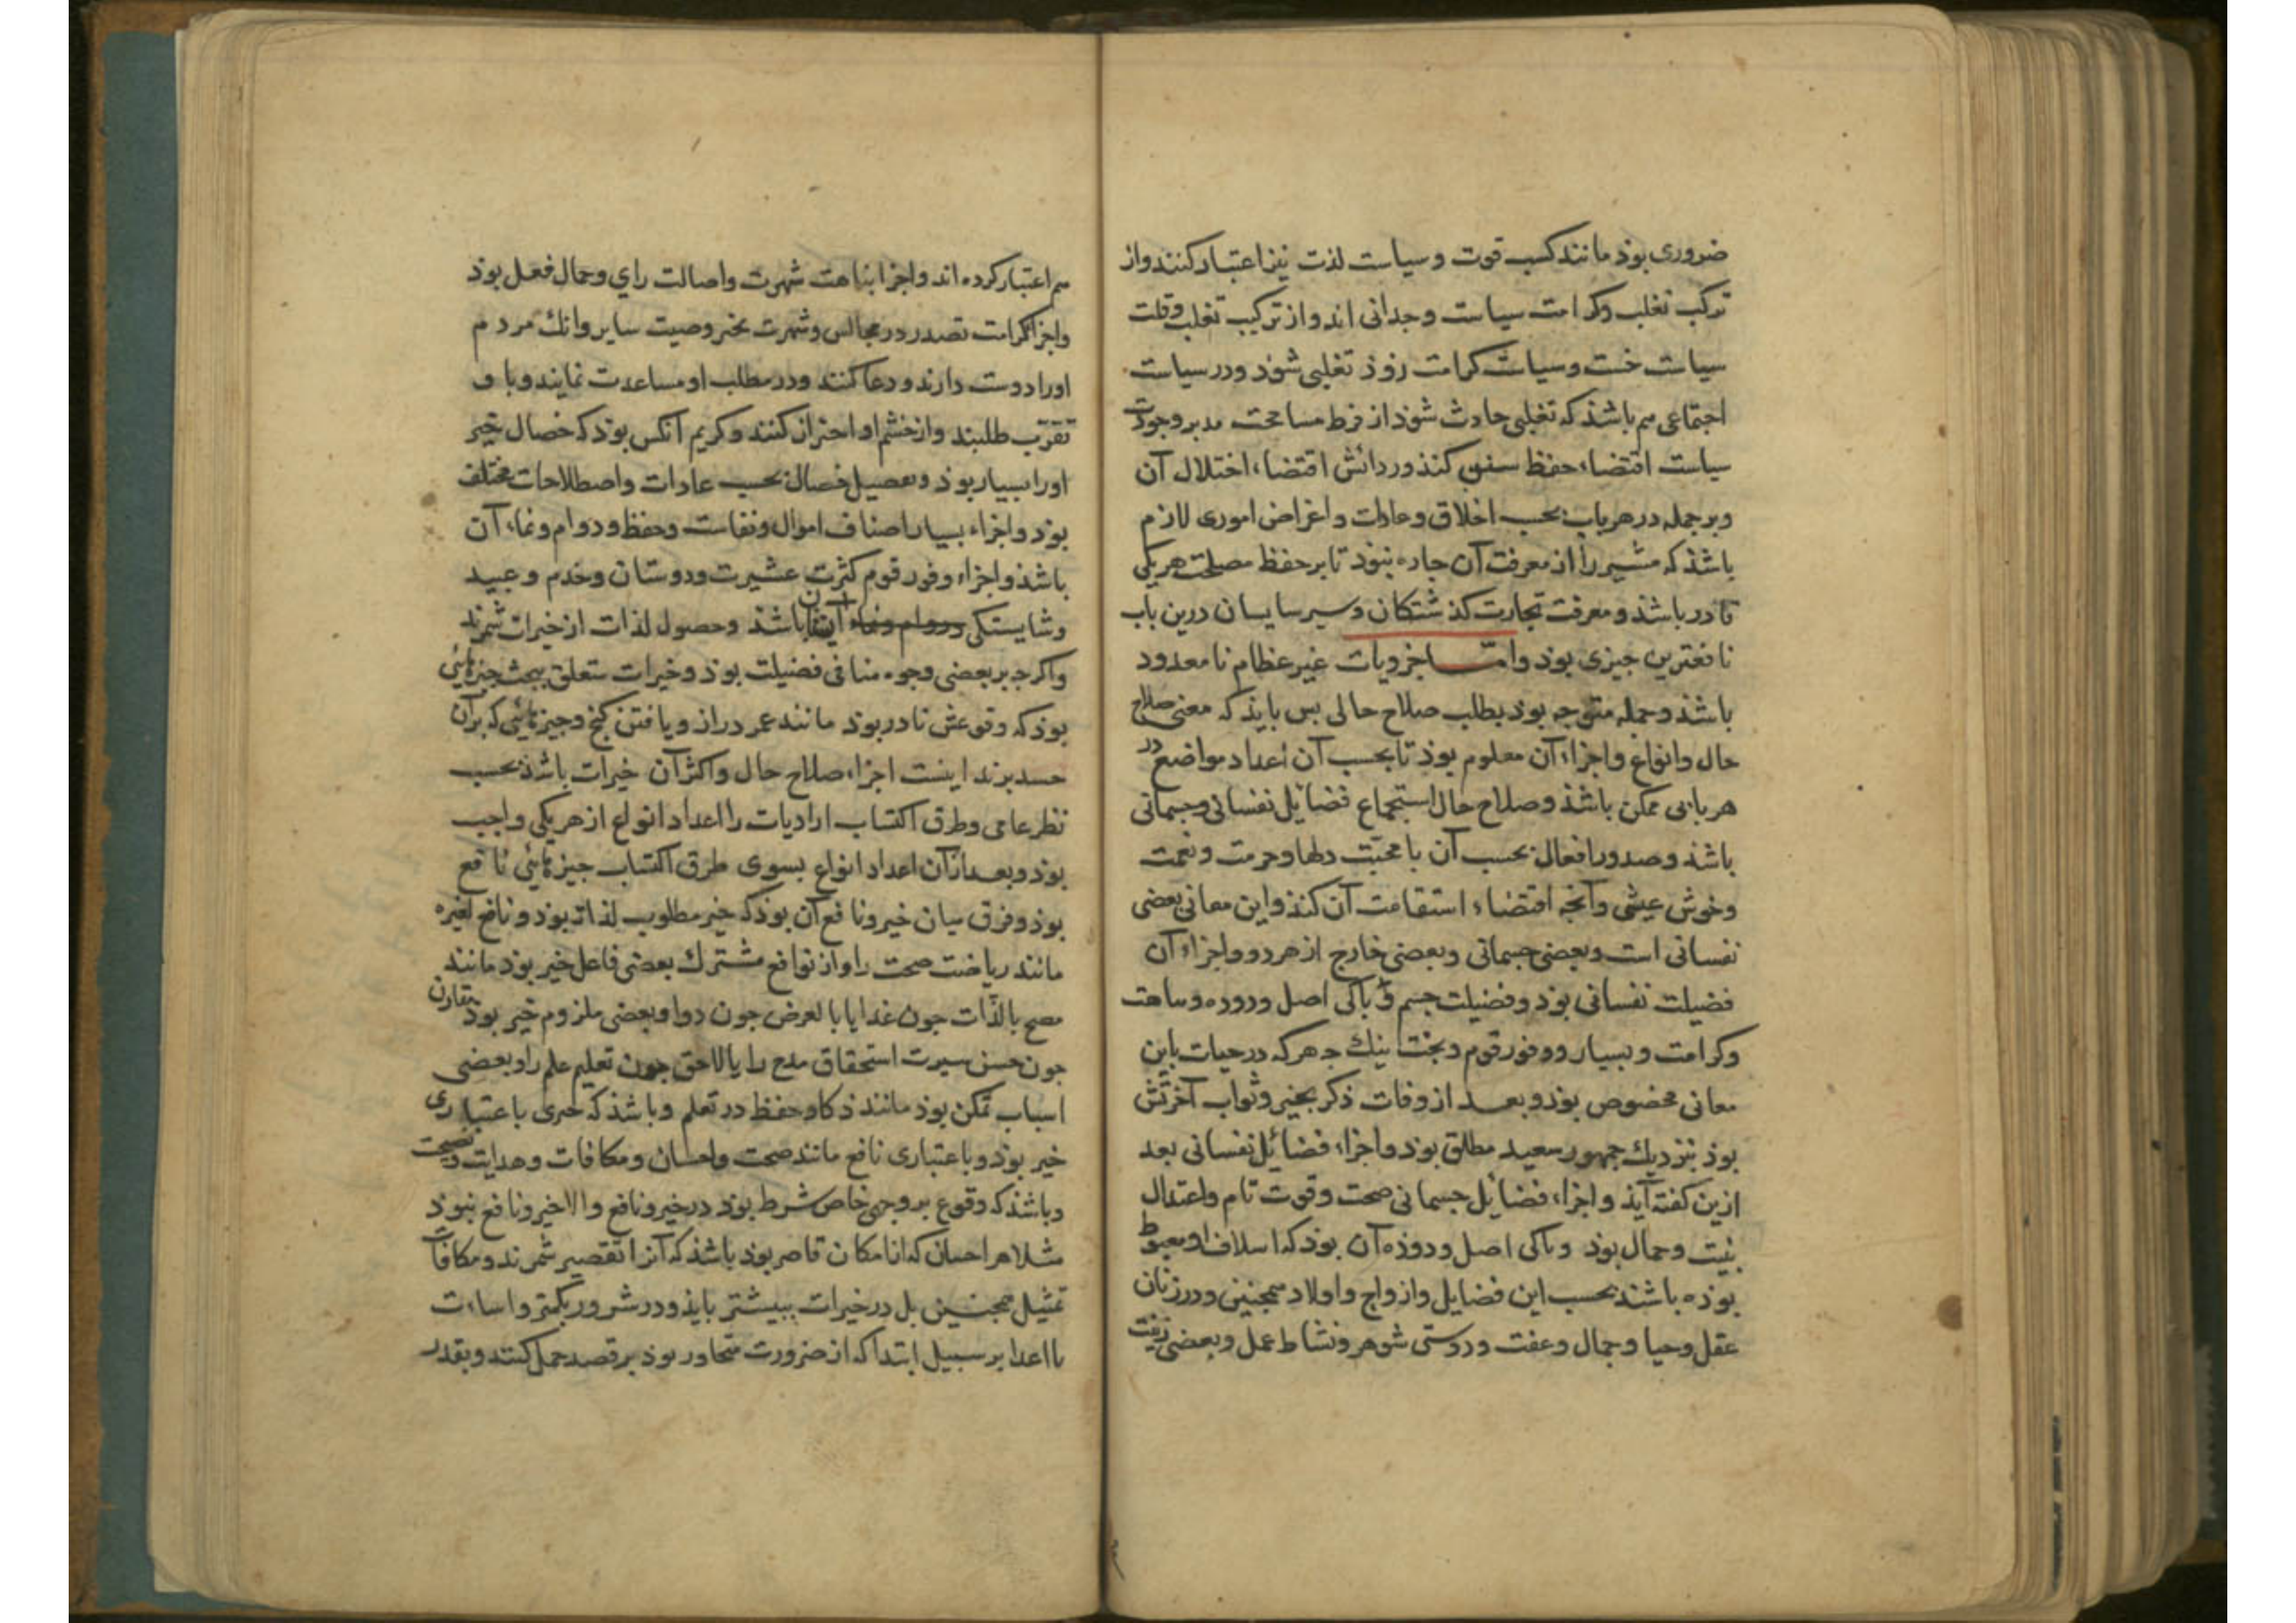 ضروری بوذ مانند کسب قوت و سیاست لذت نیز اعتبار کنند و از
ترکب تغلب و کرامت سیاست وحدانی اند و از ترکیب تغلب و قلت
سیاست خست و سیاست کرامت زوذ تغلبی شوذ و در سیاست
اجتماعی هم باشذ که تغلبی حادث شوذ از فرط مسامحت مدبر و جودت
سیاست اقتضاء حفظ سنن کنذ و ردائش اقتضاء اختلال آن
و بر جمله در هر باب بحسب اخلاق و عادات و اغراض اموری لازم
باشذ که مشیر را از معرفت آن جاره نبوذ تا بر حفظ مصلحت هر یکی
قادر باشذ و معرفت تجارت کذشتکان و سیر سایسان درین باب
نافعترین جیزی بوذ و اما خرویات غیر عظام نامعدود
باشذ و جمله متوجه بوذ بطلب صلاح حالی بس بایذ که معنی صلاح
حال و انواع و اجزاء آن معلوم بوذ تا بحسب آن اعداد مواضع در
هر بابی ممکن باشذ و صلاح حال استجماع فضایل نفسانی و جسمانی
باشذ و صدور افعال بحسب آن با محبت دلها و حرمت و نعمت
و خوش عیشی و آنجه اقتضاء استقامت آن کنذ و این معانی بعضی
نفسانی است و بعضی جسمانی و بعضی خارج از هر دو و اجزاء آن
فضیلت نفسانی بوذ و فضیلت جسم و باکی اصل و دوده و نباهت
و کرامت و بسیار و وفور قوم و بخت نیک جه هر که در حیات باین
معانی مخصوص بوذ و بعد از وفات ذکر بخیر و ثواب آخرتش
بوذ بنزدیک جمهور سعید مطلق بوذ و اجزاء فضائل نفسانی بعد
ازین کفته آیذ و اجزاء فضائل جسمانی صحت و قوت تام و اعتدال
بنیت و جمال بوذ و باکی اصل و دوذه آن بوذ که اسلاف او مغبوط
بوذه باشند بحسب این فضایل و ازواج و اولاد همجنین و در زنان
عقل و حیا و جمال و عفت و دوستی شوهر و نشاط عمل و بعضی زینت
هم اعتبار کرده اند و اجزا نباهت شهرت و اصالت رای و جمال فعل بوذ
و اجزا کرامت تصدر در مجالس و شهرت بخیر و صیت سایر و انک مردم
او را دوست دارند و دعا کنند و در مطلب او مساعدت نمایند و با و
تقرب طلبند و از خشم او احتراز کنند و کریم آنکس بوذ که خصال خیر
او را بسیار بوذ و تفصیل خصال بحسب عادات و اصطلاحات مختلف
بوذ و اجزاء بسیار اصناف اموال و نفاست و حفظ و دوام و نماء آن
باشذ و اجزاء وفور قوم کثرت عشیرت و دوستان و خدم و عبید
و شایستکی و دوام و نماء آن باشذ و حصول لذات از خیرات شمرند
و اکر جه بر بعضی وجوه منافی فضیلت بوذ و خیرات متعلق ببخت جیزهائی
بوذ که وقوعش نادر بوذ مانند عمر دراز و یافتن کنج و جیزهائی که بر آن
حسد برند اینست اجزاء صلاح حال و اکثر آن خیرات باشذ بحسب
نظر عامی و طرق اکتساب ارادیات را اعداد انواع از هر یکی واجب
بوذ و بعد از آن اعداد انواع بسوی طرق اکتساب جیزهائی نافع
بوذ و فرق میان خیر و نافع آن بوذ که خیر مطلوب لذاته بوذ و نافع لغیره
مانند ریاضت صحت را و از نوافع مشترک بعضی فاعل خیر بوذ مانند
مصح بالذات جون غدا یا بالعرض جون دوا و بعضی ملزوم خیر بوذ بتقارن
جون حسن سیرت استحقاق مدح را یا لاحق جون تعلیم علم را و بعضی
اسباب تمکن بوذ مانند ذکا و حفظ در تعلم و باشذ که خیری باعتباری
خیر بوذ و باعتباری نافع مانند صحت و احسان و مکافات و هدایت و نصیحت
و باشذ که وقوع بر وجهی خاص شرط بوذ در خیر و نافع و الا خیر و نافع نبوذ
مثلا هر احسان که از امکان قاصر بوذ باشذ که آنرا تقصیر شمرند و مکافات
تمثیل همجنین بل در خیرات ببیشتر بایذ و در شرور بکمتر و اساءت
با اعدا بر سبیل ابتدا که از ضرورت متجاوز بوذ بر قصد حمل کنند و بقدر